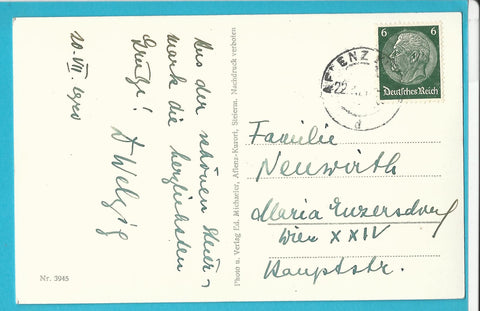 20. VII. 1940
Aus der schönen Steier-
mark die herzlichsten
Grüße!
Nr. 3945
Photo u. Verlag Ed. Michseiter, Aflenz-Kurort, Steierm. Nachdruck verboten
AFLENZ
22
d
6 6
Deutsches Reich
Familie
Neuwirth
Maria Enzersdorf
Wien XXIV
Hauptstr.